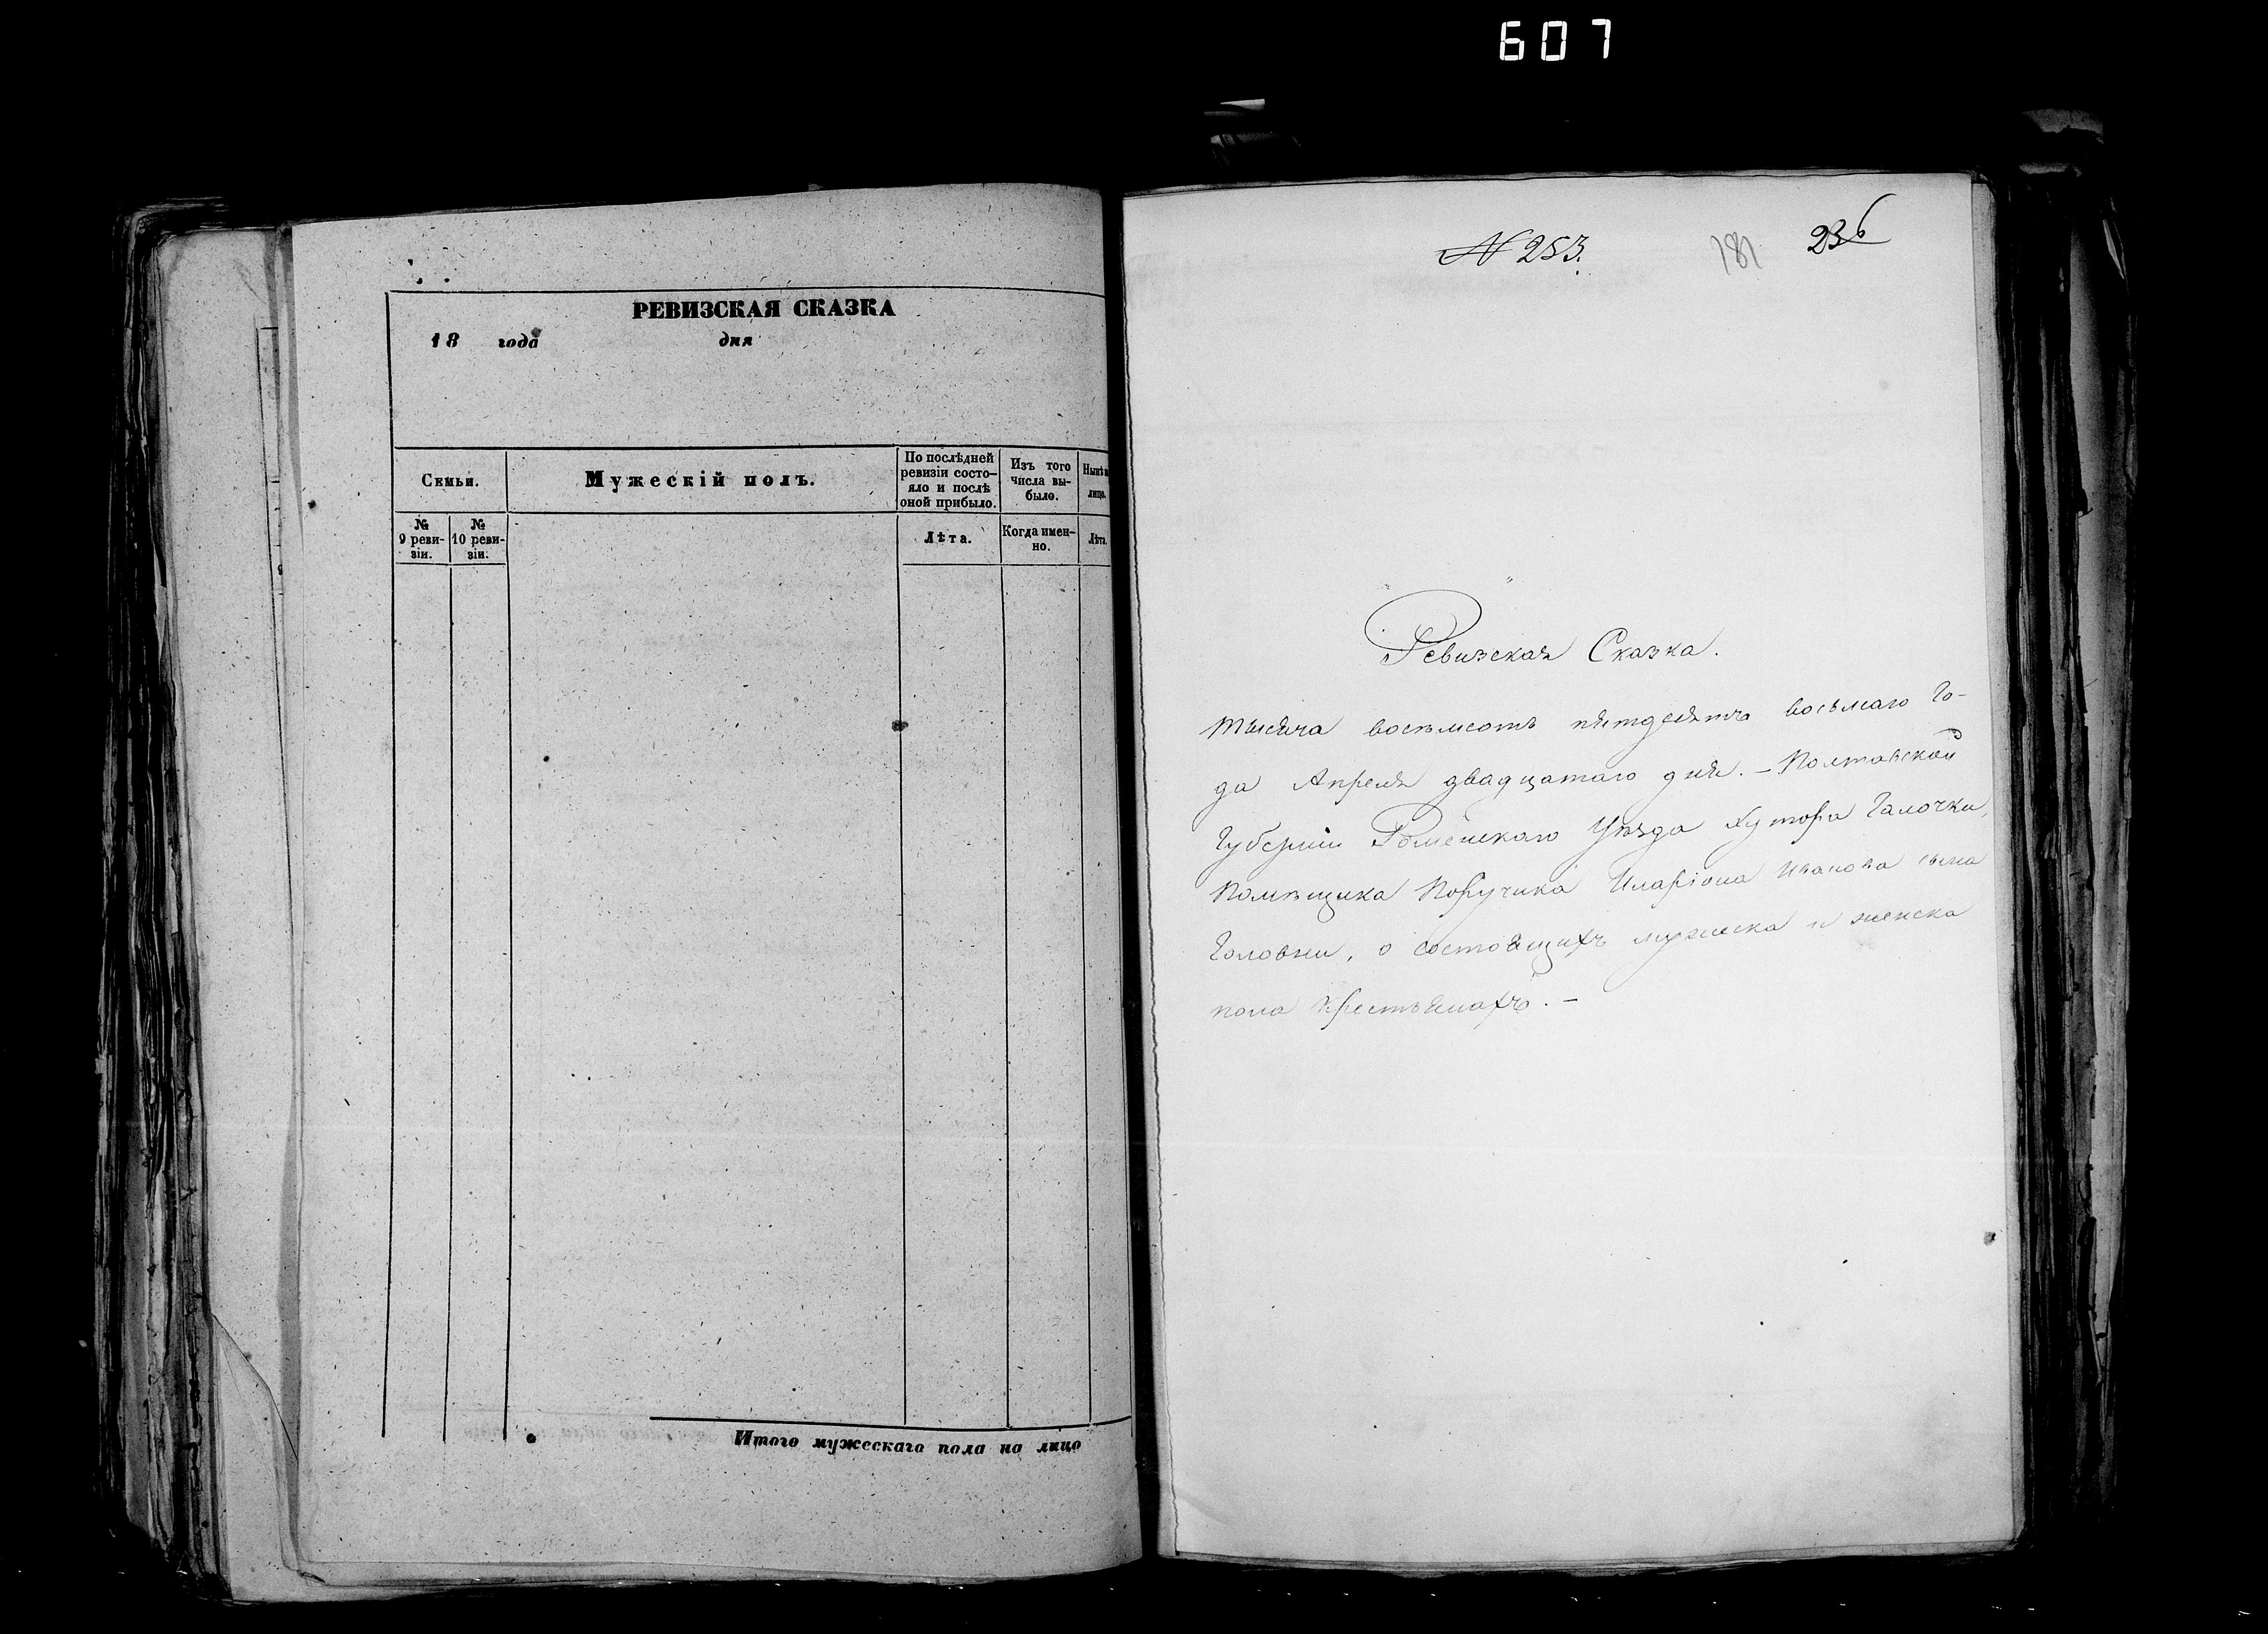 607
РЕВИЗСКАЯ СКАЗКА
18 года дня
Семьи.
Мужескій полъ.
По послѣдней
ревизіи состо-
яло и послѣ
оной прибыло.
Изъ того
числа вы-
было.
Нынѣ н
лицо.
№
9 реви-
зіи.
№
10 реви-
зіи.
Лѣта.
Когда имен-
но.
Лѣта.
Итого мужескаго пола на лицо
№ 253.
181
236
Ревизская Сказка.
Тысяча восемсотъ пятдесятъ восьмаго Го-
да Апреля двадцатаго дня. – Полтавской
Губерніи Роменскаго Уѣзда Хутора Галочки,
Помѣщика Поручика Иларіона Иванова сына
Головни, о состоящихъ мужеска и женска
пола крестьянахъ. –